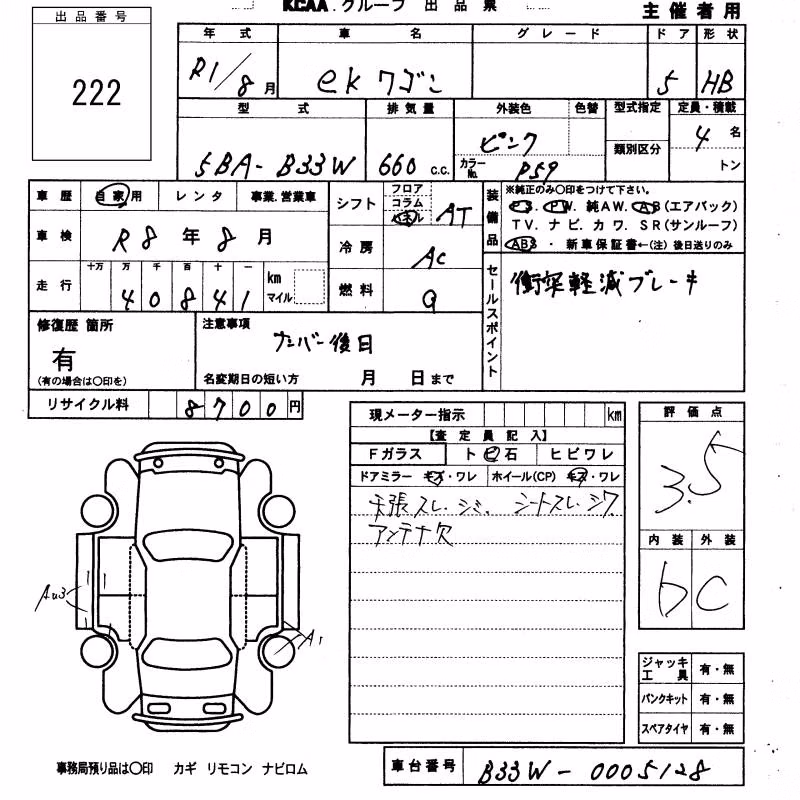 KCAA.グループ 出品票
主催者用
出品番号
222
年式 車名 グレード ドア 形状
R1/8月 ekワゴン 5 HB
型式 排気量 外装色 色替 型式指定 定員・積載
5BA-B33W 660 c.c. ピンク カラーNo. P59 類別区分 4名 トン
車歴 自家用 レンタ 事業.営業車
車検 R8年8月
走行 十万 万 千 百 十 一
40841 km マイル
シフト フロア コラム パネル AT
冷房 AC
燃料 G
装備品
※純正のみ〇印をつけて下さい。
P.S. P.W. 純AW. AB(エアバック)
TV. ナビ. カワ. SR(サンルーフ)
ABS ・ 新車保証書←(注) 後日送りのみ
セールスポイント
衝突軽減ブレーキ
修復歴 箇所
有
(有の場合は〇印を)
注意事項
ナンバー後日
名変期日の短い方 月 日まで
リサイクル料 8700円
現メーター指示 km
【査定員記入】
Fガラス トビ石 ヒビワレ
ドアミラー キズ・ワレ ホイール(CP) キズ・ワレ
天張スレ.シミ. シートスレ.シワ
アンテナ欠
評価点
3.5
内装 外装
b C
Au3
A1
ジャッキ工具 有・無
パンクキット 有・無
スペアタイヤ 有・無
事務局預り品は〇印 カギ リモコン ナビロム
車台番号 B33W-0005128